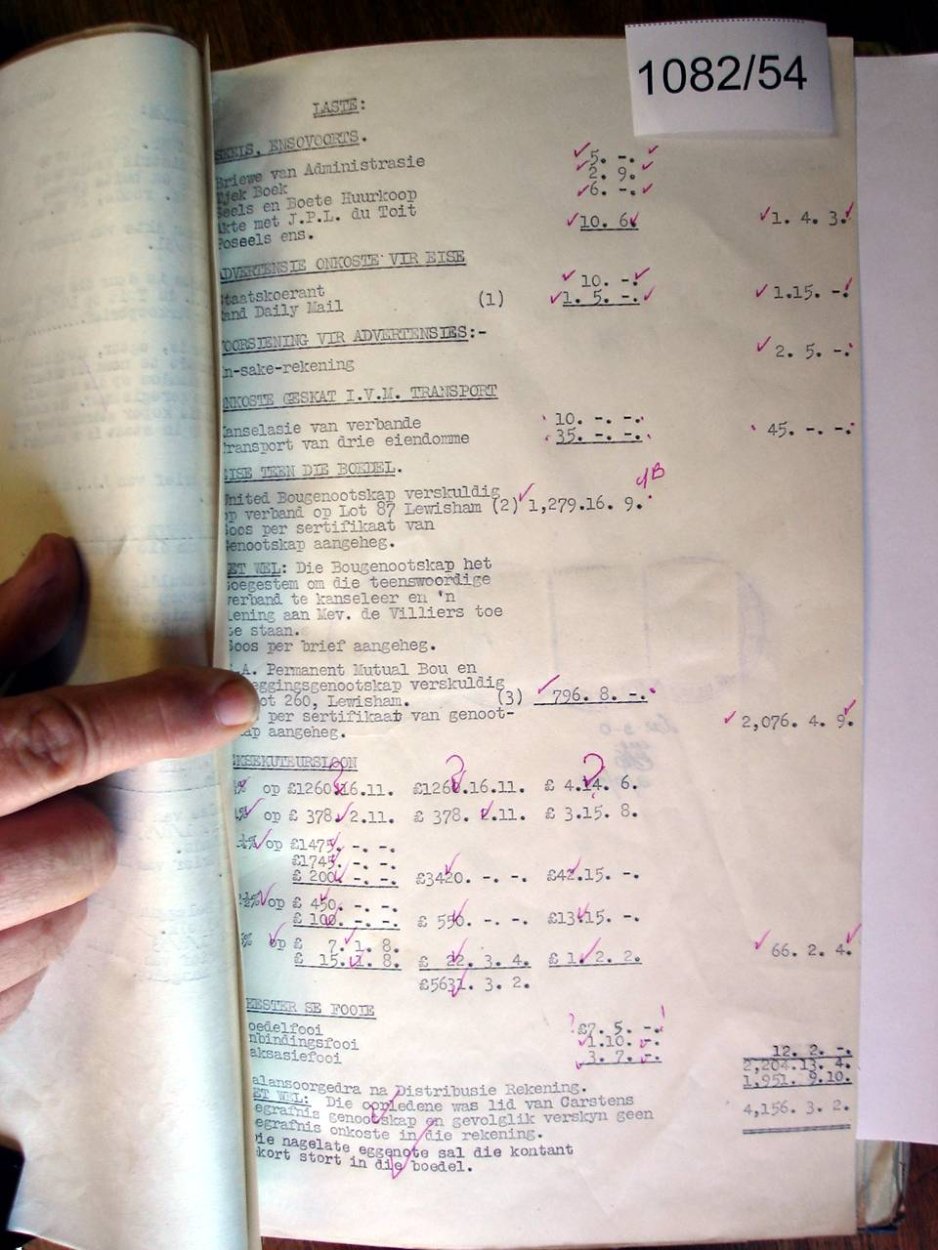 1082/54
LASTE:
SEELS, ENSOVOORTS.
Briewe van Administrasie 5. -.
Tjek Boek 2. 9.
eels en Boete Huurkoop 6. -.
kte met J.P.L. du Toit 10. 6. 1. 4. 3.
oseels ens.
ADVERTENSIE ONKOSTE VIR EISE
taatskoerant 10. -.
and Daily Mail (1) 1. 5. -. 1.15. -.
OORSIENING VIR ADVERTENSIES:-
n-sake-rekening 2. 5. -.
ONKOSTE GESKAT I.V.M. TRANSPORT
anselasie van verbande 10. -. -.
ransport van drie eiendomme 35. -. -. 45. -. -.
EISE TEEN DIE BOEDEL.
United Bougenootskap verskuldig
op verband op Lot 87 Lewisham (2) 1,279.16. 9.
soos per sertifikaat van
genootskap aangeheg.
ET WEL: Die Bougenootskap het
oegestem om die teenswoordige
verband te kanseleer en 'n
lening aan Mev. de Villiers toe
te staan.
Soos per brief aangeheg.
.A. Permanent Mutual Bou en
eggingsgenootskap verskuldig
ot 260, Lewisham. (3) 796. 8. -.
per sertifikaat van genoot- 2,076. 4. 9.
ap aangeheg.
EKSEKUTEURSLOON
% op £1260.16.11. £1260.16.11. £ 4.14. 6.
% op £ 378. 2.11. £ 378. 2.11. £ 3.15. 8.
¼% op £1475. -. -.
£1745. -. -.
£ 200. -. -. £3420. -. -. £42.15. -.
½% op £ 450. -. -.
£ 100. -. -. £ 550. -. -. £13.15. -.
% op £ 7. 1. 8.
£ 15. 1. 8. £ 22. 3. 4. £ 1. 2. 2. 66. 2. 4.
£5631. 3. 2.
EESTER SE FOOIE
oedelfooi £7. 5. -.
nbindingsfooi 1.10. -.
aksasiefooi 3. 7. -. 12. 2. -.
2,204.13. 4.
alansoorgedra na Distribusie Rekening. 1,951. 9.10.
ET WEL: Die oorledene was lid van Carstens
egrafnis genootskap en gevolglik verskyn geen 4,156. 3. 2.
egrafnis onkoste in die rekening.
ie nagelate eggenote sal die kontant
kort stort in die boedel.